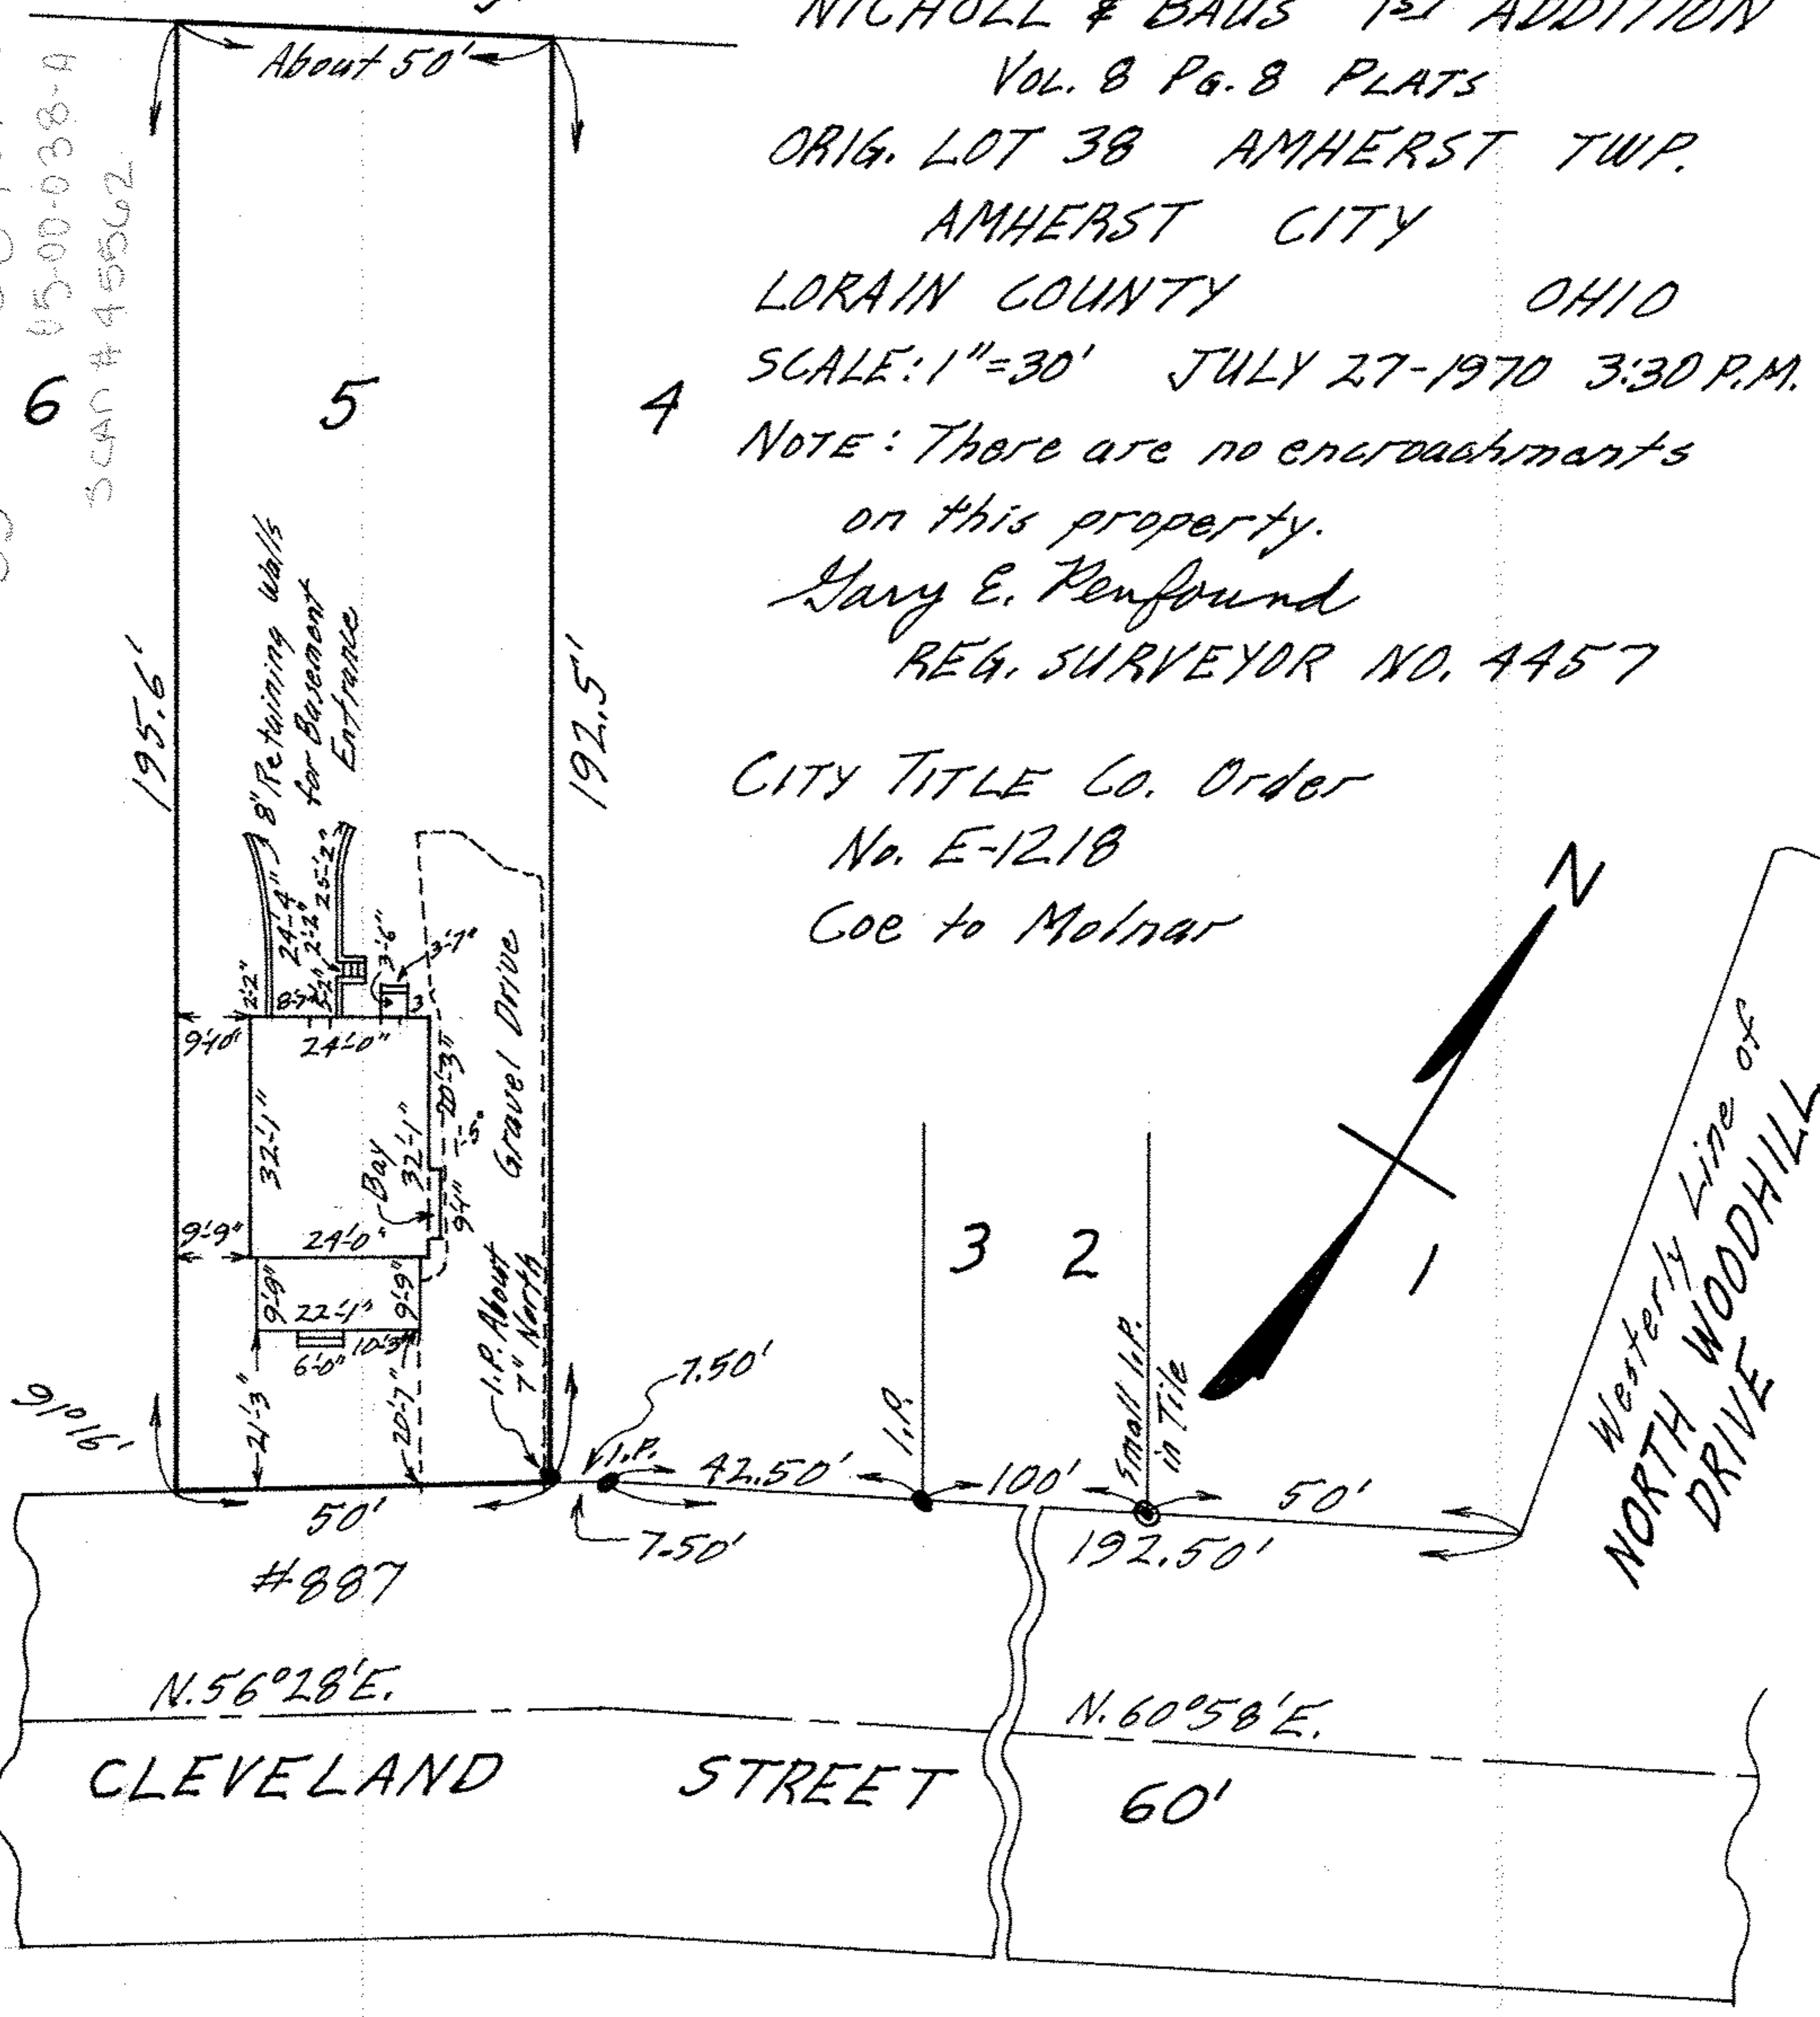 NICHOLL & BAUS 1st ADDITION
VOL. 8 PG. 8 PLATS
ORIG. LOT 38 AMHERST TWP.
AMHERST CITY
LORAIN COUNTY OHIO
SCALE: 1"=30' JULY 27-1970 3:30 P.M.
NOTE: There are no encroachments
on this property.
Gary E. Penfound
REG. SURVEYOR NO. 4457
CITY TITLE Co. Order
No. E-1218
Coe to Molnar
N
About 50'
05-00-038-A
SCAN # 45562
6
5
4
195.6'
192.5'
8" Retaining Walls
for Basement
Entrance
24'-4"
2'-2"
25'-2"
2'-2"
5'-2"
3'-6"
3'-7"
9'-10"
24'-0"
32'-1"
Bay
32'-1"
20'-3"
9'-1"
Gravel Drive
9'-9"
24'-0"
9'-9"
22'-1"
9'-9"
6'-0"
10'-3"
21'-3"
20'-7"
I.P. About
7" North
91°16'
50'
#887
7.50'
I.P.
7.50'
42.50'
I.P.
100'
3
2
1
Small I.P.
in Tile
50'
192.50'
Westerly Line of
NORTH WOODHILL
DRIVE
N.56°28'E.
N.60°58'E.
CLEVELAND STREET 60'